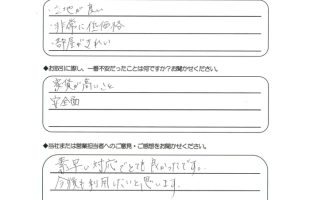 ・立地が良い
・非常に低価格
・部屋がきれい
◆お取引に際し、一番不安だったことは何ですか？お聞かせください。
家賃が高いこと
安全面
◆当社または営業担当者へのご意見・ご感想をお聞かせください。
素早い対応でとても良かったです。
今後も利用したいと思います。